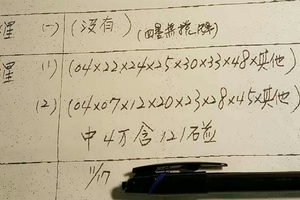 理 (一) (没有)
理 (1) (04×22×24×25×30×33×48×其他)
(2) (04×07×12×20×23×28×45×其他)
中4万含121石益
11/17